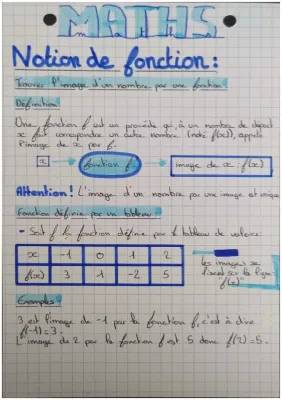 MATHS
Notion de fonction :
Trouver l'image d'un nombre par une fonction
Définition
Une fonction f est un procédé qui, à un nombre de départ
x fait correspondre un autre nombre (noté f(x)), appelé
l'image de x par f.
x → fonction f → image de x : f(x)
Attention ! L'image d'un nombre par une image est unique
Fonction définie par un tableau :
- Soit f la fonction définie par le tableau de valeurs :
x -1 0 1 2
f(x) 3 1 -2 5
Les images se
lisent sur la ligne
"f(x)"
Exemples :
3 est l'image de -1 par la fonction f, c'est à dire
f(-1) = 3.
L'image de 2 par la fonction f est 5 donc f(2) = 5.